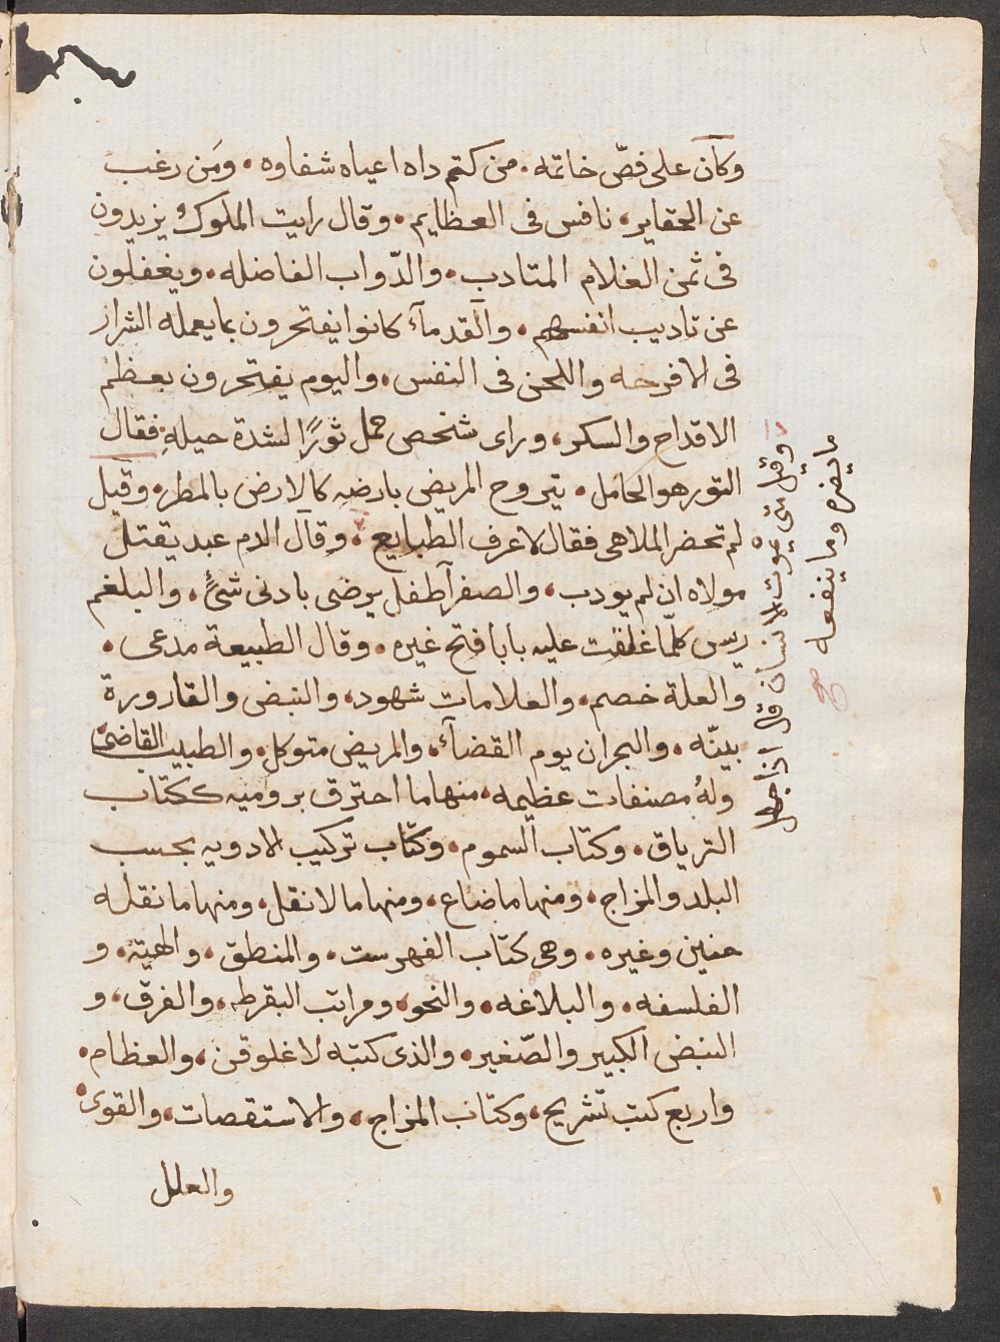 وكان على فصّ خاتمه ٠ من كتم داه اعياه شفاوه ٠ ومَن رغب
عن الحقاير ٠ نافس فى العظايم ٠ وقال رايت الملوك يزيدون
فى ثمن الغلام المتادب ٠ والدّواب الفاضله ٠ ويغفلون
عن تاديب انفسهم ٠ والقدمآء كانوا يفتخرون بما يعمله الشراب
فى الافرحه واللحن فى النفس ٠ واليوم يفتخرون بعظم
الاقداح والسكر ٠ وراى شخص حمل ثورًا لشدة حيله ٠ فقال
الثور هو الحامل ٠ يتروح المريض بارضه كالارض بالمطر ٠ وقيل
لم تحضر الملاهى فقال لاعرف الطبايع ٠ وقال الدم عبد يقتل
مولاه ان لم يودب ٠ والصفرآ طفل يرضى بادنى شئ ٠ والبلغم
ريس كلّما غلقت عليه بابا فتح غيره ٠ وقال الطبيعة مدعى ٠
والعلة خصم ٠ والعلامات شهود ٠ والنبض والقارورة
بينّه ٠ والبحران يوم القضآء ٠ والمريض متوكل ٠ والطبيب القاضى
ولهُ مصنفات عظيمه ٠ منها ما احترق بروميه ككتاب
الترياق ٠ وكتاب السموم ٠ وكتاب تركيب الادويه بحسب
البلد والمزاج ٠ ومنها ما ضاع ٠ ومنها ما لا نقل ٠ ومنها ما نقله
حنين وغيره ٠ وهى كتاب الفهرست ٠ والمنطق ٠ والهيئة ٠ و
الفلسفه ٠ والبلاغه ٠ والنحو ٠ ومراتب البقرطه ٠ والفرق ٠ و
النبض الكبير والصّغير ٠ والذى كتبه لاغلوقن ٠ والعظام ٠
واربع كتب تشريح ٠ وكتاب المزاج ٠ والاستقصات ٠ والقوى ٠
والعلل
وقيل متى يموت الانسان قال اذا جهل
ما يضره وما ينفعه